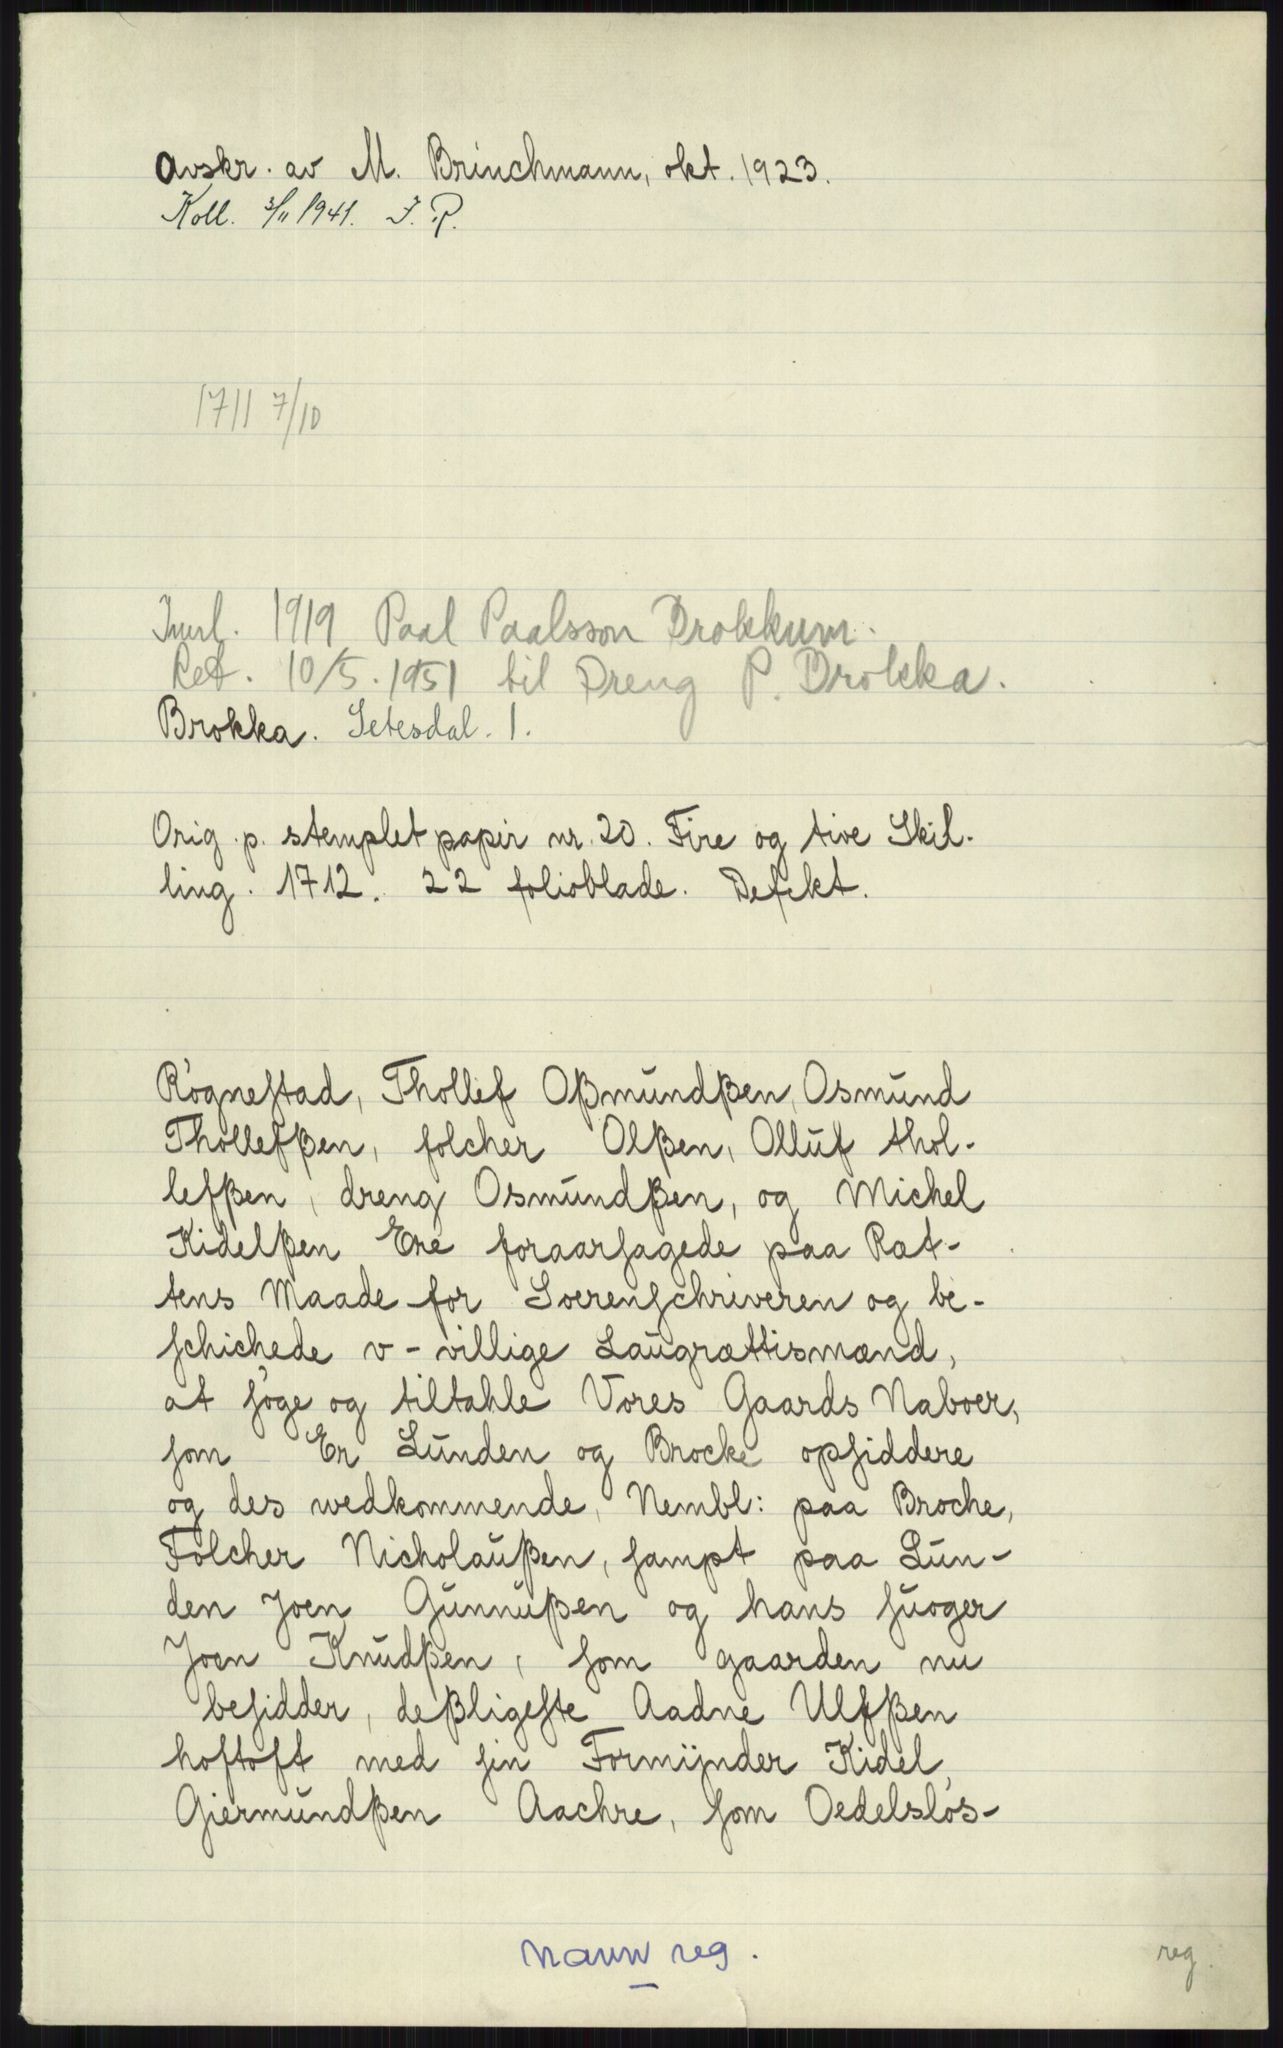 Avskr. av M. Brinchmann, okt. 1923.
Koll. 3/11 1941. J. P.
1711 7/10
Innl. 1919 Paal Paalsson Brokkum.
Ret. 10/5. 1951 til Dreng P. Brokka.
Brokka. Setesdal. 1.
Orig. p. stemplet papir nr. 20. Fire og tive Skil-
ling. 1712. 22 folioblade. Defekt.
Rógnestad, Thollef Oßmŭndßen, Osmŭnd
Thollefßen, folcher Olßen, Ollŭf thol-
lefßen, dreng Osmŭndßen, og Michel
Kidelßen Ere foraarsagede paa Ræt-
tens Maade for Soerenschriveren og be-
schichede v-villige Laŭgrættismænd,
at sóge og tiltahle Vores Gaards Naboer,
som Er Lŭnden og Brocke opsiddere
og des wedkommende, Nembl: paa Broche,
Folcher Nicholaŭßen, sampt paa Lŭn-
den Joen Gŭnnŭßen og hans sŭoger
Joen Knŭdßen, som gaarden nu
besidder, deßligeste Aadne Ulfßen
hoftoft med sin Formÿnder Kidel
Giermŭndßen Aachre, som Oedelslós-
navn reg.
reg.